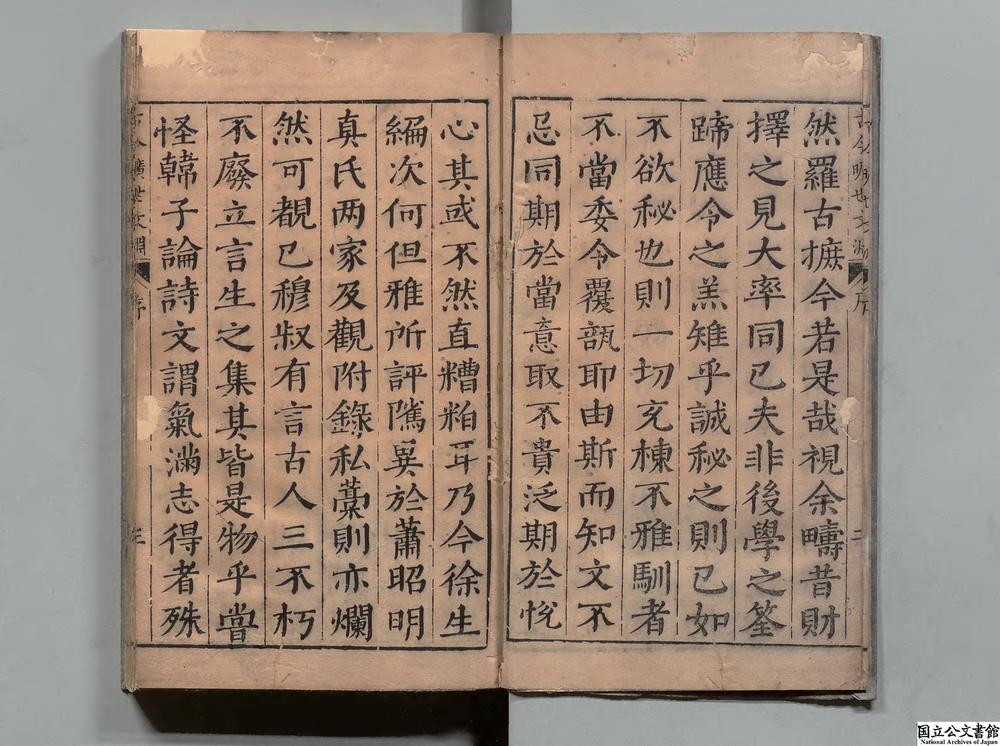 然羅古摭今若是哉視余疇昔財
擇之見大率同已夫非後學之筌
蹄應令之羔雉乎誠秘之則已如
不欲秘也則一切充棟不雅馴者
不當委令覆瓿耶由斯而知文不
忌同期於當意取不貴泛期於悅
心其或不然直糟粕耳乃今徐生
編次何但雅所評隲異於蕭昭明
真氏两家及觀附錄私藁則亦爛
然可覩已穆叔有言古人三不朽
不廢立言生之集其皆是物乎嘗
怪韓子論詩文謂氣滿志得者殊
序
三
国立公文書館
National Archives of Japan